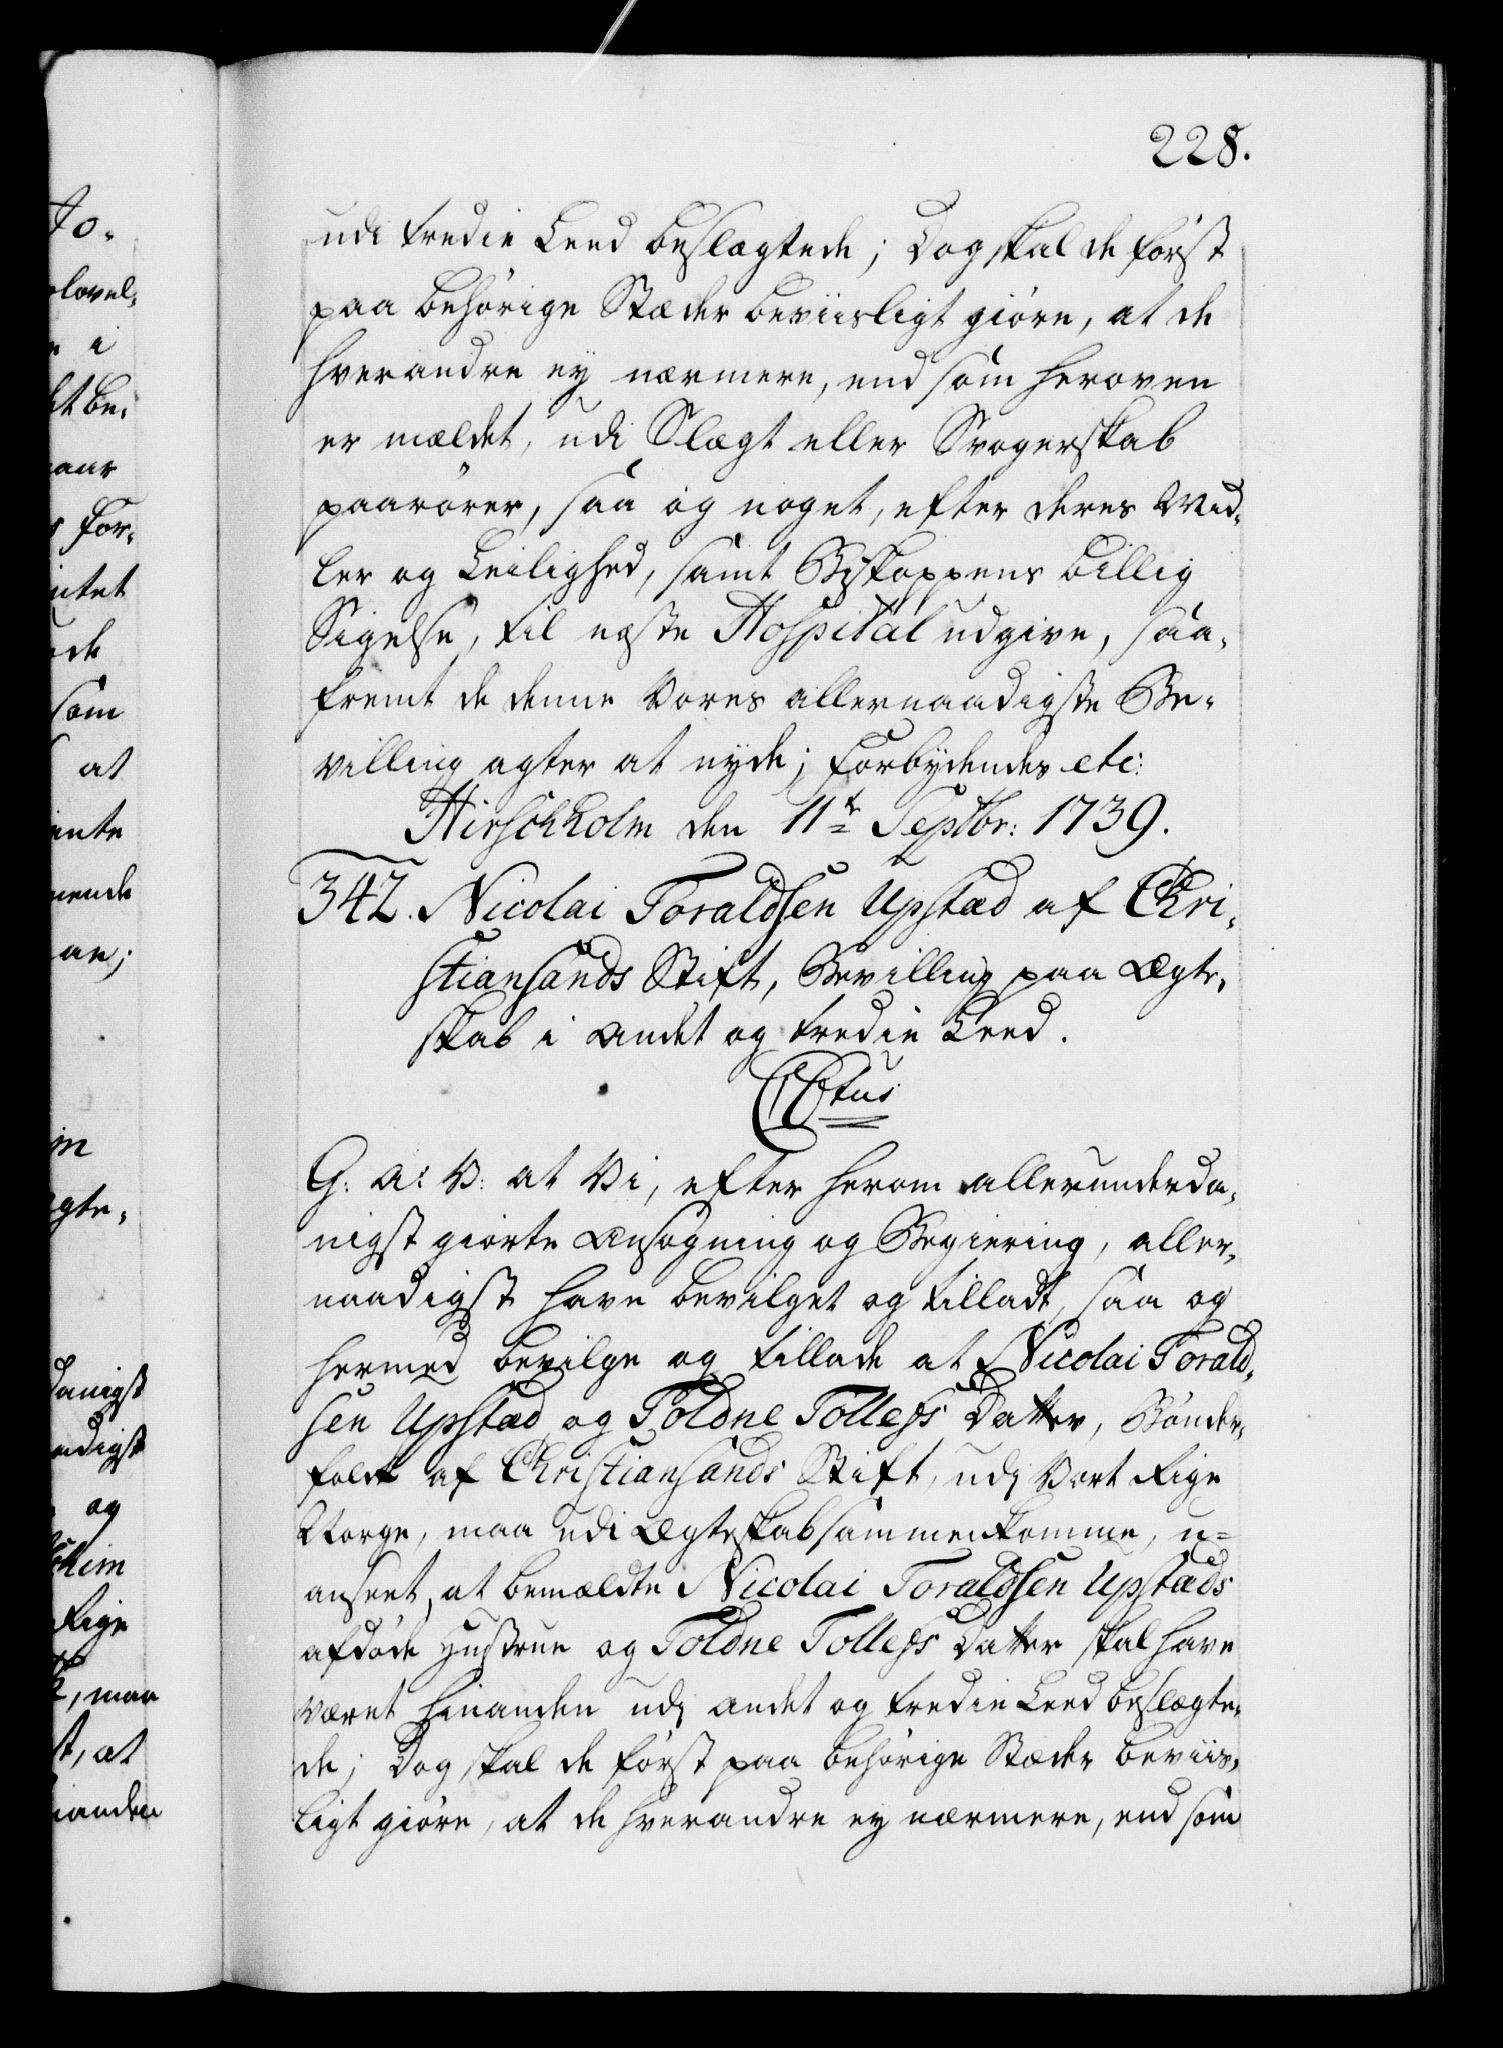 228.
udi tredie Leed beslægtede; Dog skal de først
paa behörige Stæder beviisligt giöre, at de
hverandre ey nærmere, end som heroven
er mældet, udi Slægt eller Svogerskab
paarörer, saa og noget, efter deres Mid-
ler og Leilighed, samt Biskoppens billig
Sigelse, til næste Hospital udgive, saa-
fremt de denne Vores allernaadigste Be-
villing agter at nyde; Forbydendes etc:
Hirschholm den 11te Septbr: 1739.
342. Nicolai Toraldsen Upstad af Chri-
stiansands Stift, Bevilling paa Ægte-
skab i andet og tredie Leed.
C6tus
G: A: V: at Vi, efter herom allerunderda-
nigst giorte Ansøgning og Begiering, aller-
naadigst have bevilget og tilladt, saa og
hermed bevilge og tillade at Nicolai Torald-
sen Upstad og Toldne Tollefs Datter, Bönder-
folk af Christiansands Stift, udj Vort Rige
Norge, maa udi Ægteskab sammenkomme, u-
anseet, at bemældte Nicolai Toraldsen Upstads
afdöde Hustrue og Toldne Tollefs Datter skal have
været hinanden udj andet og tredie Leed beslægte-
de; Dog skal de först paa behörige Stæder beviis-
ligt giöre, at de hverandre ey nærmere, end som
to-
lovel-
i
et be-
aar
for-
intet
de
som
at
ente
mende
an;
im
gte-
danigst
adigst
og
him
Rige
, maa
st, at
inanden